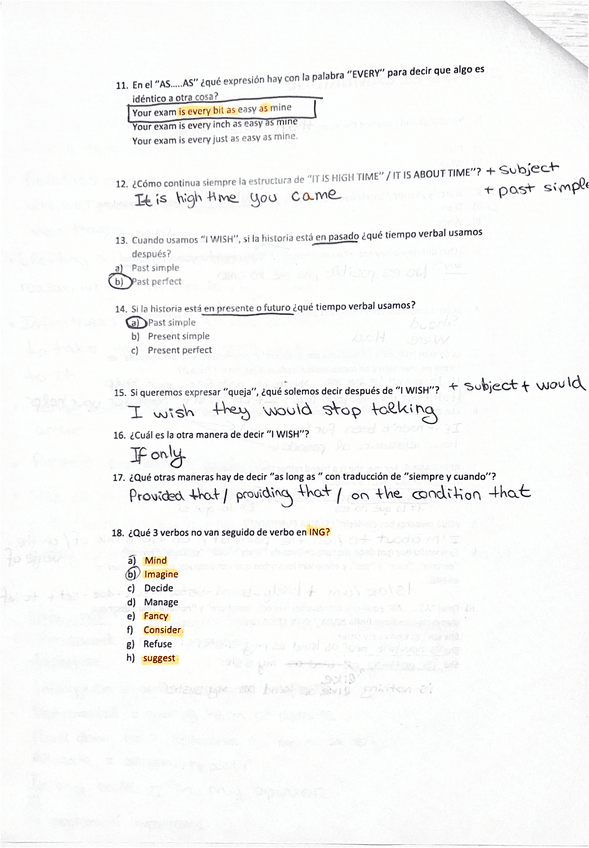 11. En el "AS.....AS" ¿qué expresión hay con la palabra "EVERY" para decir que algo es
idéntico a otra cosa?
Your exam is every bit as easy as mine
Your exam is every inch as easy as mine
Your exam is every just as easy as mine.
12. ¿Cómo continua siempre la estructura de "IT IS HIGH TIME" / IT IS ABOUT TIME"? + Subject
+ past simple
It is high time you came
13. Cuando usamos "I WISH", si la historia está en pasado ¿qué tiempo verbal usamos
después?
a) Past simple
b) Past perfect
14. Si la historia está en presente o futuro ¿qué tiempo verbal usamos?
a) Past simple
b) Present simple
c) Present perfect
15. Si queremos expresar "queja", ¿qué solemos decir después de "I WISH"? + subject + would
I wish they would stop talking
16. ¿Cuál es la otra manera de decir "I WISH"?
If only
17. ¿Qué otras maneras hay de decir "as long as " con traducción de "siempre y cuando"?
Provided that / providing that / on the condition that
18. ¿Qué 3 verbos no van seguido de verbo en ING?
a) Mind
b) Imagine
c) Decide
d) Manage
e) Fancy
f) Consider
g) Refuse
h) suggest